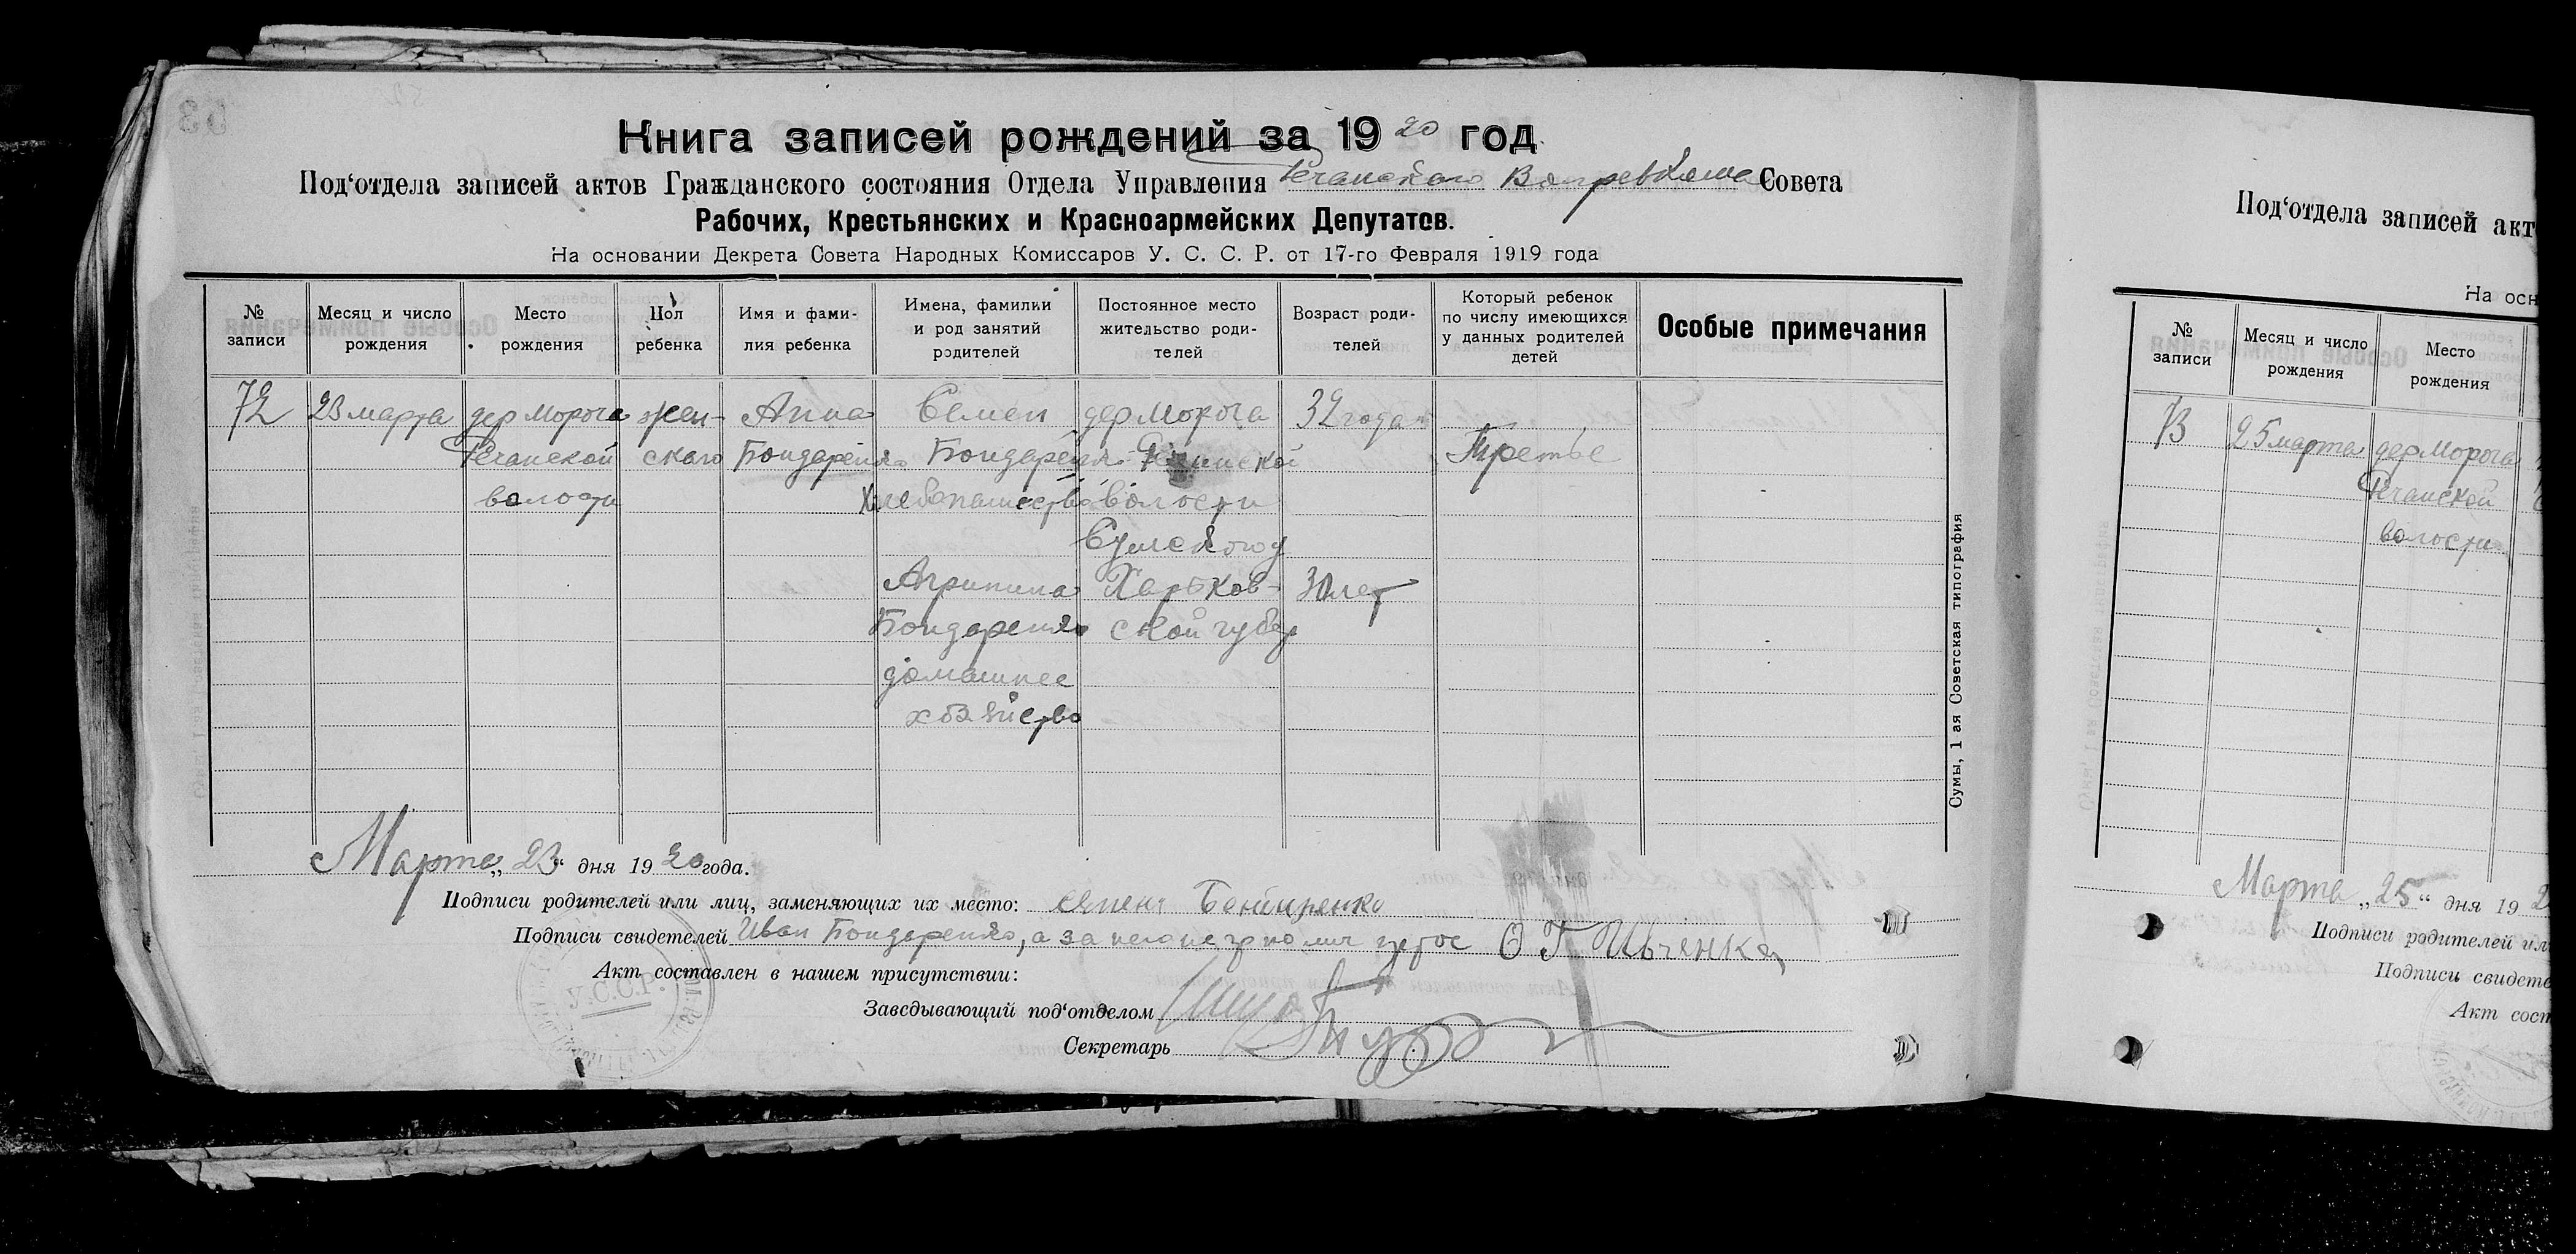 Книга записей рождений за 1920 год
Под‘отдела записей актов Гражданского состояния Отдела Управления Речанского Волревкома Совета
Рабочих, Крестьянских и Красноармейских Депутатов.
На основании Декрета Совета Народных Комиссаров У. С. С. Р. от 17-го Февраля 1919 года
№ записи
Месяц и число рождения
Место рождения
Пол ребенка
Имя и фами-
лия ребенка
Имена, фамилии
и род занятий
родителей
Постоянное место
жительство роди-
телей
Возраст роди-
телей
Который ребенок
по числу имеющихся
у данных родителей
детей
Особые примечания
72 23 марта дер Мороча жен- Анна Семен дер Мороча 32 года
Речанской ского Бондаренко Бондаренко Речанской Третье
волости Хлебопашество волости
Сумского у
Агрипина Харьков- 30 лет
Бондаренко ской губер
домашнее
хозяйство
Марта „23“ дня 1920 года.
Подписи родителей или лиц, заменяющих их место: Бондаренко
Подписи свидетелей Иван Бондаренко, а за него неграмотн О Г Ивченко
Акт составлен в нашем присутствии:
У.С.С.Р.
Заведывающий под‘отделом
Секретарь
Сумы, 1 ая Советская типография
Под‘отдела записей акт
На осн
№ записи
Месяц и число рождения
Место рождения
73 25 марта дер Мороча
Речанской
волости
Марта „25“ дня 19 2
Подписи родителей ил
Подписи свидете
Акт сост